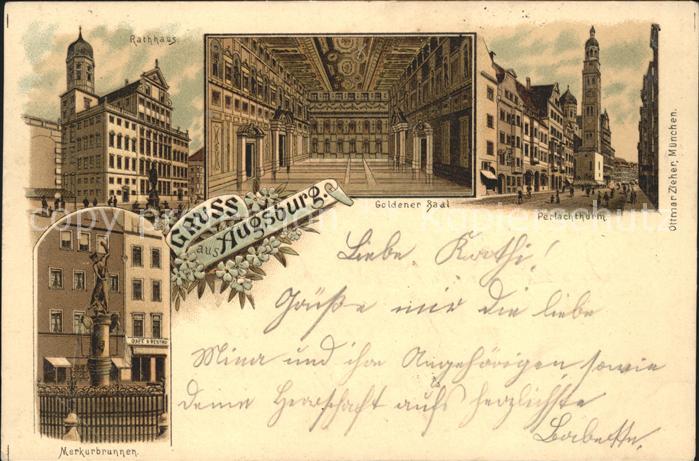 Rathhaus.
Goldener Saal
Perlachthurm.
Ottmar Zieher, München.
GRUSS
aus Augsburg.
CAFÉ & RESTAU
Merkurbrunnen.
Liebe
Grüße mir die liebe
Mina und ihre Angehörigen sowie
deine Herrschaft aufs herzlichste
Babette.